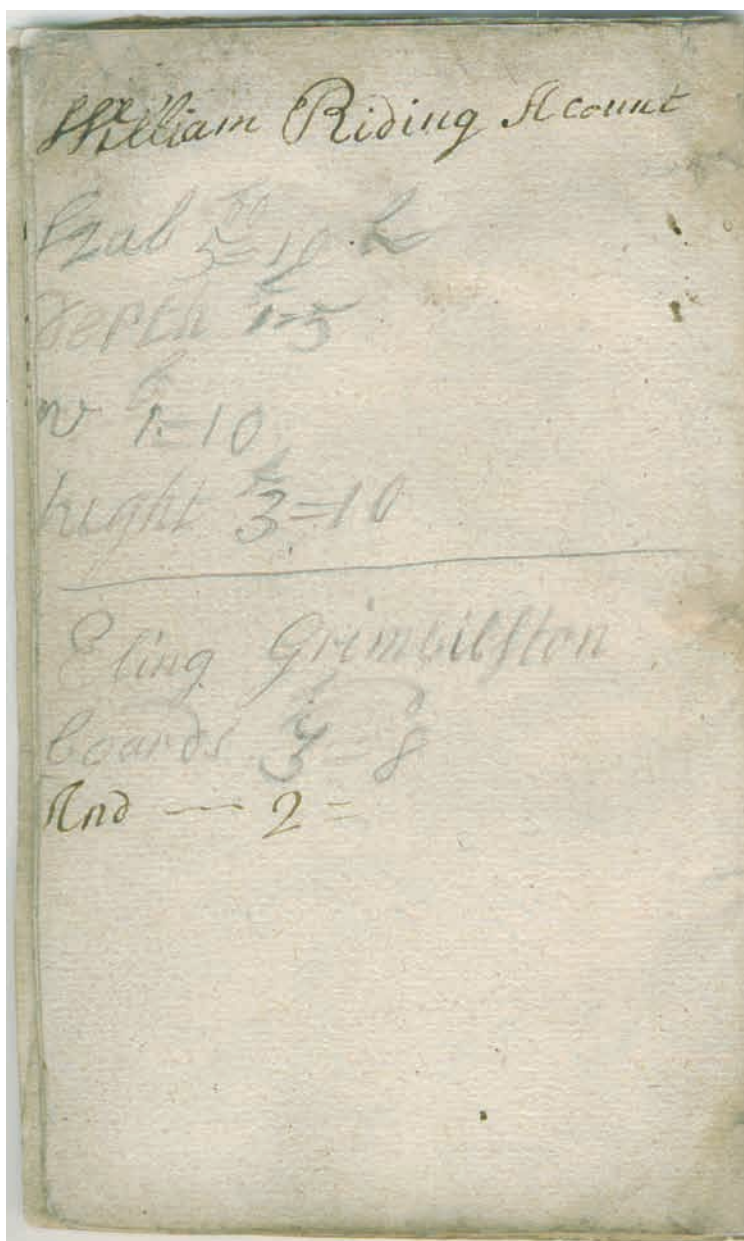 William Riding Acount
5=10
depth 1-5
w 1=10
hight 3=10
Eling Grimbilston
boards 3=8
And — 2 =